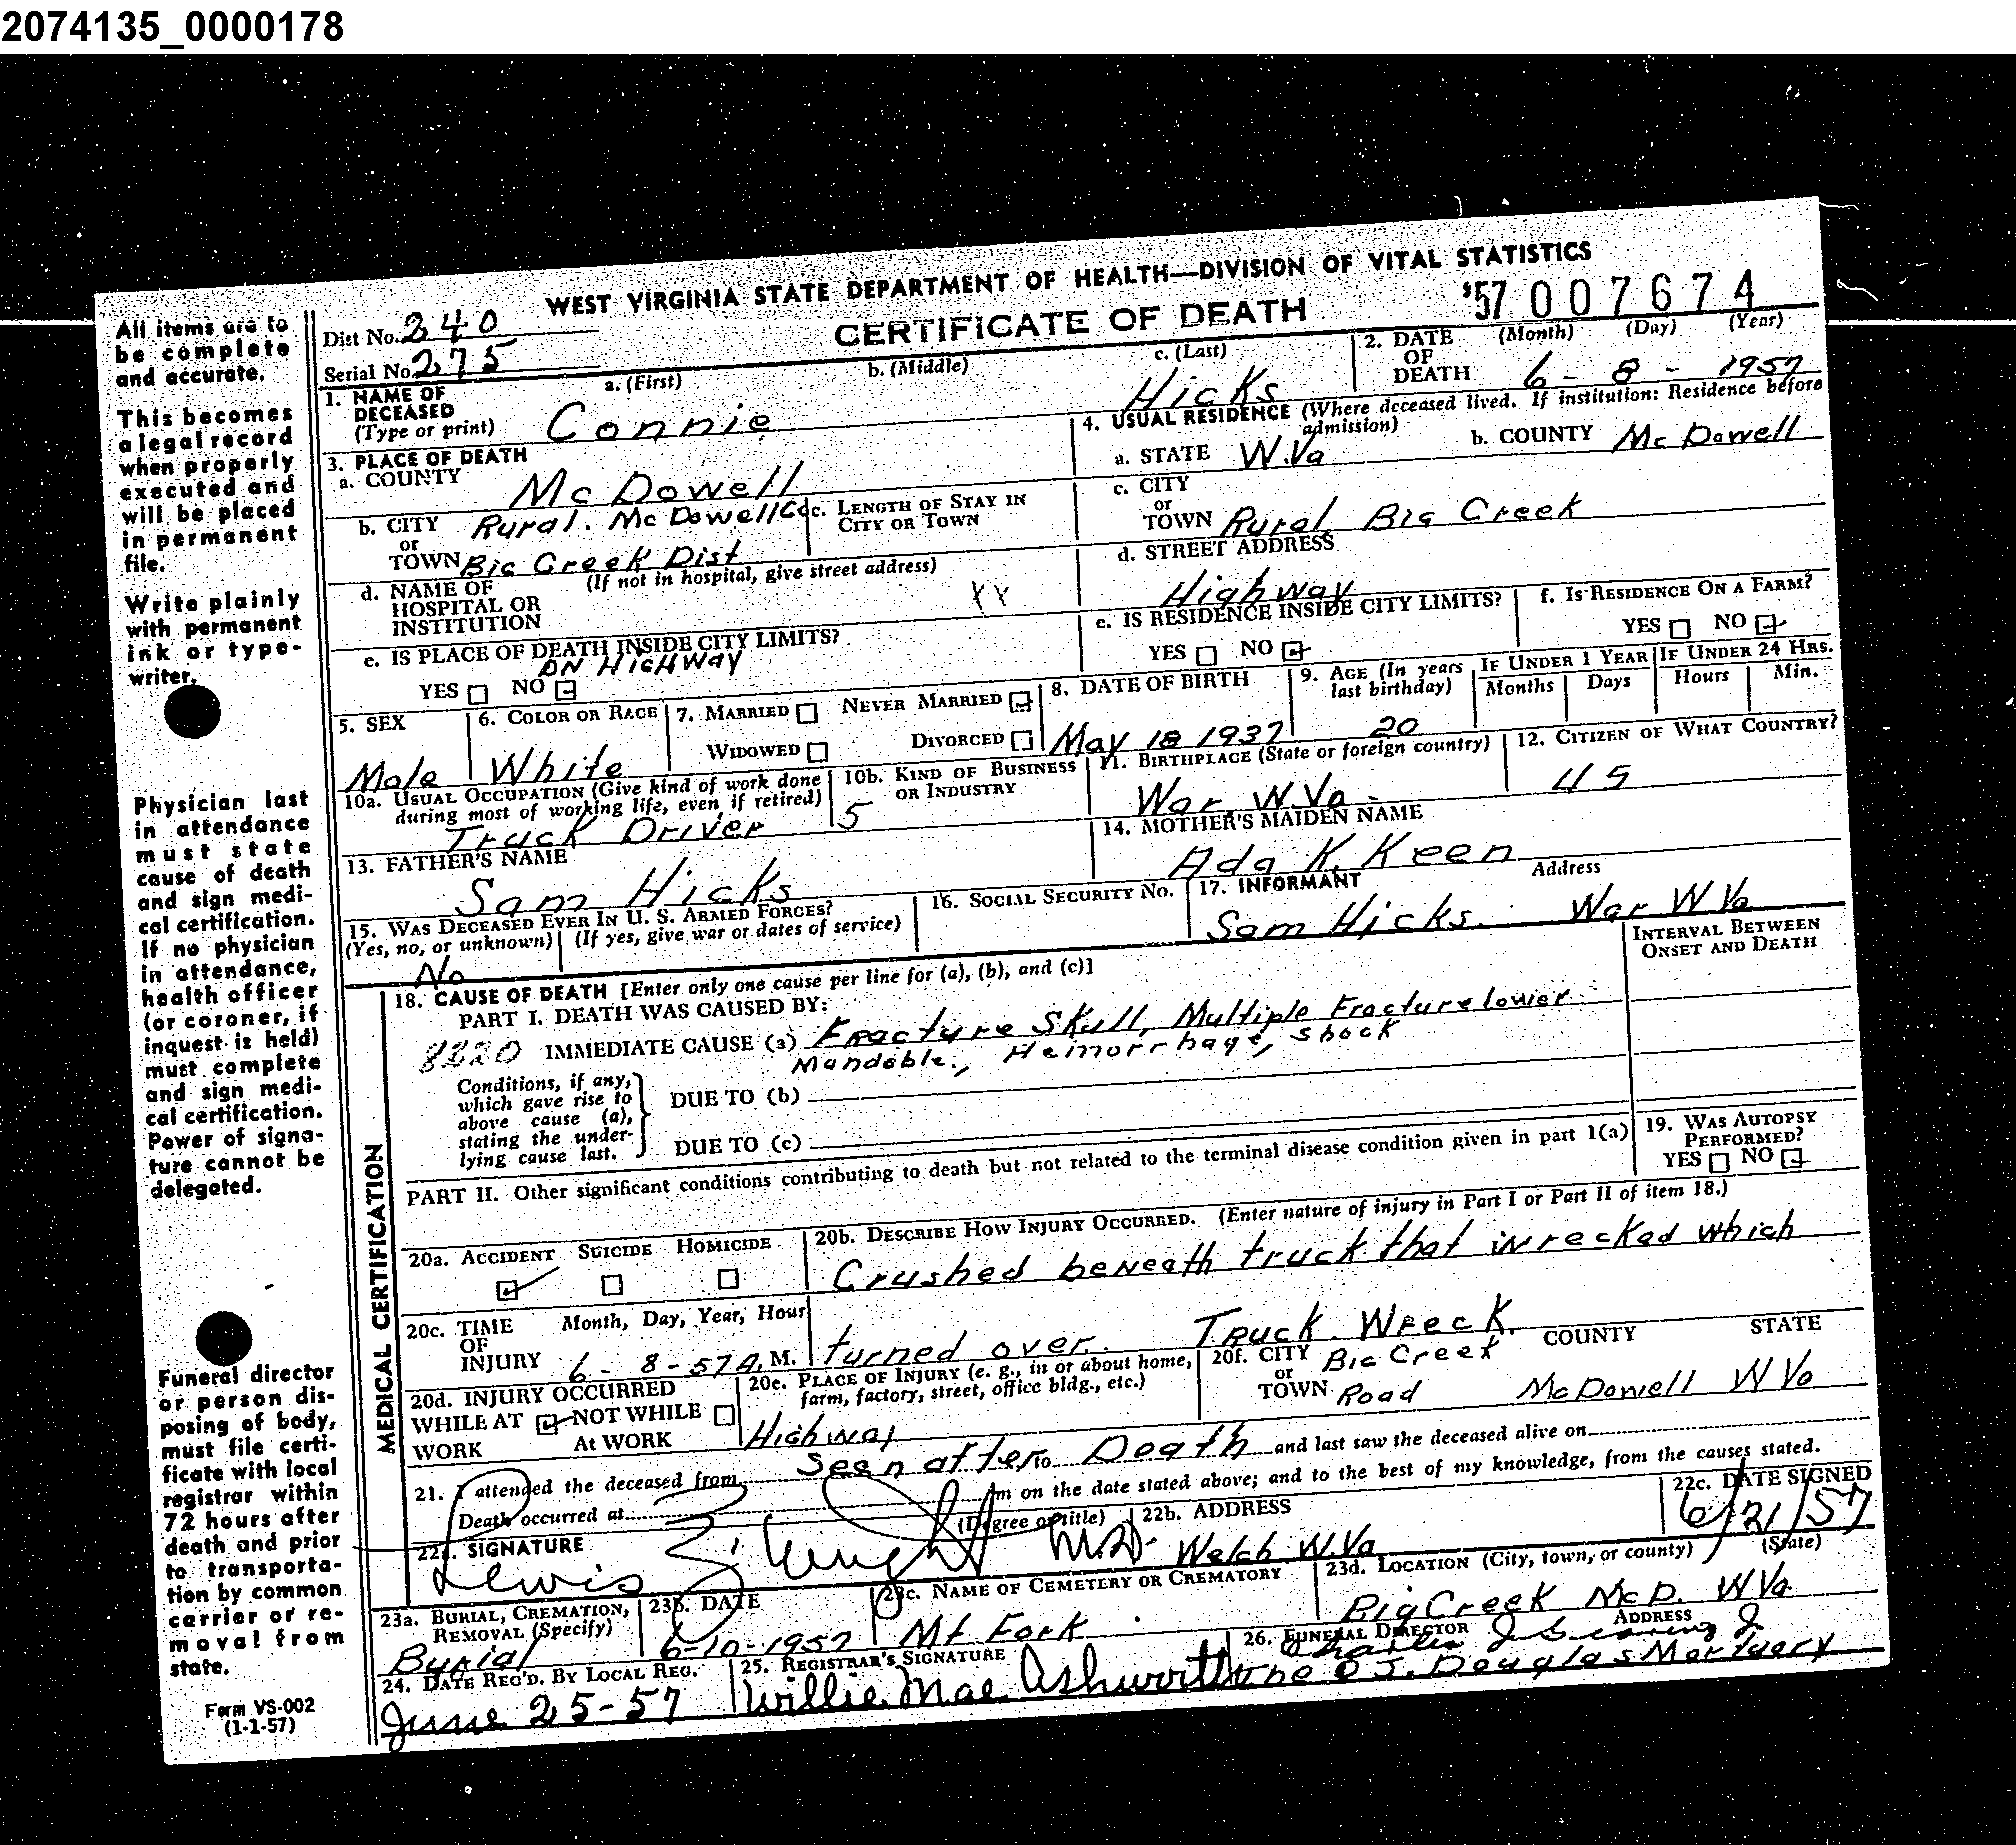 2074135_0000178
WEST VIRGINIA STATE DEPARTMENT OF HEALTH—DIVISION OF VITAL STATISTICS
CERTIFICATE OF DEATH
'57 007674
Dist No. 240
Serial No. 275
All items are to
be complete
and accurate.
This becomes
a legal record
when properly
executed and
will be placed
in permanent
file.
Write plainly
with permanent
ink or type-
writer.
Physician last
in attendance
must state
cause of death
and sign medi-
cal certification.
If no physician
in attendance,
health officer
(or coroner, if
inquest is held)
must complete
and sign medi-
cal certification.
Power of signa-
ture cannot be
delegated.
Funeral director
or person dis-
posing of body,
must file certi-
ficate with local
registrar within
72 hours after
death and prior
to transporta-
tion by common
carrier or re-
moval from
state.
Form VS-002
(1-1-57)
1. NAME OF DECEASED (Type or print) a. (First) b. (Middle) c. (Last)
Connie Hicks
2. DATE OF DEATH (Month) (Day) (Year)
6 - 8 - 1957
3. PLACE OF DEATH
a. COUNTY McDowell
b. CITY or TOWN Rural. McDowell Co
Big Creek Dist
c. LENGTH OF STAY IN CITY OR TOWN
d. NAME OF HOSPITAL OR INSTITUTION (If not in hospital, give street address)
XX
e. IS PLACE OF DEATH INSIDE CITY LIMITS?
ON HIGHWAY
YES NO
4. USUAL RESIDENCE (Where deceased lived. If institution: Residence before admission)
a. STATE W.Va b. COUNTY McDowell
c. CITY or TOWN Rural Big Creek
d. STREET ADDRESS
Highway
e. IS RESIDENCE INSIDE CITY LIMITS?
YES NO
f. IS RESIDENCE ON A FARM?
YES NO
5. SEX
Male
6. COLOR OR RACE
White
7. MARRIED NEVER MARRIED
WIDOWED DIVORCED
8. DATE OF BIRTH
May 18 1937
9. AGE (In years last birthday)
20
IF UNDER 1 YEAR IF UNDER 24 HRS.
Months Days Hours Min.
10a. USUAL OCCUPATION (Give kind of work done during most of working life, even if retired)
Truck Driver
10b. KIND OF BUSINESS OR INDUSTRY
5
11. BIRTHPLACE (State or foreign country)
War, W.Va.
12. CITIZEN OF WHAT COUNTRY?
US
13. FATHER'S NAME
Sam Hicks
14. MOTHER'S MAIDEN NAME
Ada K. Keen
15. WAS DECEASED EVER IN U. S. ARMED FORCES?
(Yes, no, or unknown) (If yes, give war or dates of service)
No
16. SOCIAL SECURITY NO.
17. INFORMANT Address
Sam Hicks. War W Va
MEDICAL CERTIFICATION
18. CAUSE OF DEATH [Enter only one cause per line for (a), (b), and (c)]
INTERVAL BETWEEN ONSET AND DEATH
PART I. DEATH WAS CAUSED BY:
8320 IMMEDIATE CAUSE (a) Fracture Skull, Multiple Fracture lower
Mandoble., Hemorrhage, Shock
Conditions, if any,
which gave rise to
above cause (a),
stating the under-
lying cause last.
DUE TO (b)
DUE TO (c)
PART II. Other significant conditions contributing to death but not related to the terminal disease condition given in part 1(a)
19. WAS AUTOPSY PERFORMED?
YES NO
20a. ACCIDENT SUICIDE HOMICIDE
20b. DESCRIBE HOW INJURY OCCURRED. (Enter nature of injury in Part I or Part II of item 18.)
Crushed beneath truck that wrecked which
turned over. Truck Wreck.
20c. TIME OF INJURY Month, Day, Year, Hour
6 - 8 - 57 A. M.
20d. INJURY OCCURRED
WHILE AT WORK NOT WHILE At WORK
20e. PLACE OF INJURY (e. g., in or about home, farm, factory, street, office bldg., etc.)
Highway
20f. CITY or TOWN COUNTY STATE
Big Creek
Road McDowell W Va
21. I attended the deceased from Seen after to Death and last saw the deceased alive on
Death occurred at m on the date stated above; and to the best of my knowledge, from the causes stated.
22a. SIGNATURE (Degree or title)
Lewis M.D.
22b. ADDRESS
Welch W.Va
22c. DATE SIGNED
6/21/57
23a. BURIAL, CREMATION, REMOVAL (Specify)
Burial
23b. DATE
6-10-1957
23c. NAME OF CEMETERY OR CREMATORY
Mt Fork
23d. LOCATION (City, town, or county) (State)
Big Creek McD. W Va
24. DATE REC'D. BY LOCAL REG.
June 25-57
25. REGISTRAR'S SIGNATURE
Willie Mae Ashworth
26. FUNERAL DIRECTOR ADDRESS
Charles
J. Douglas Mortuary